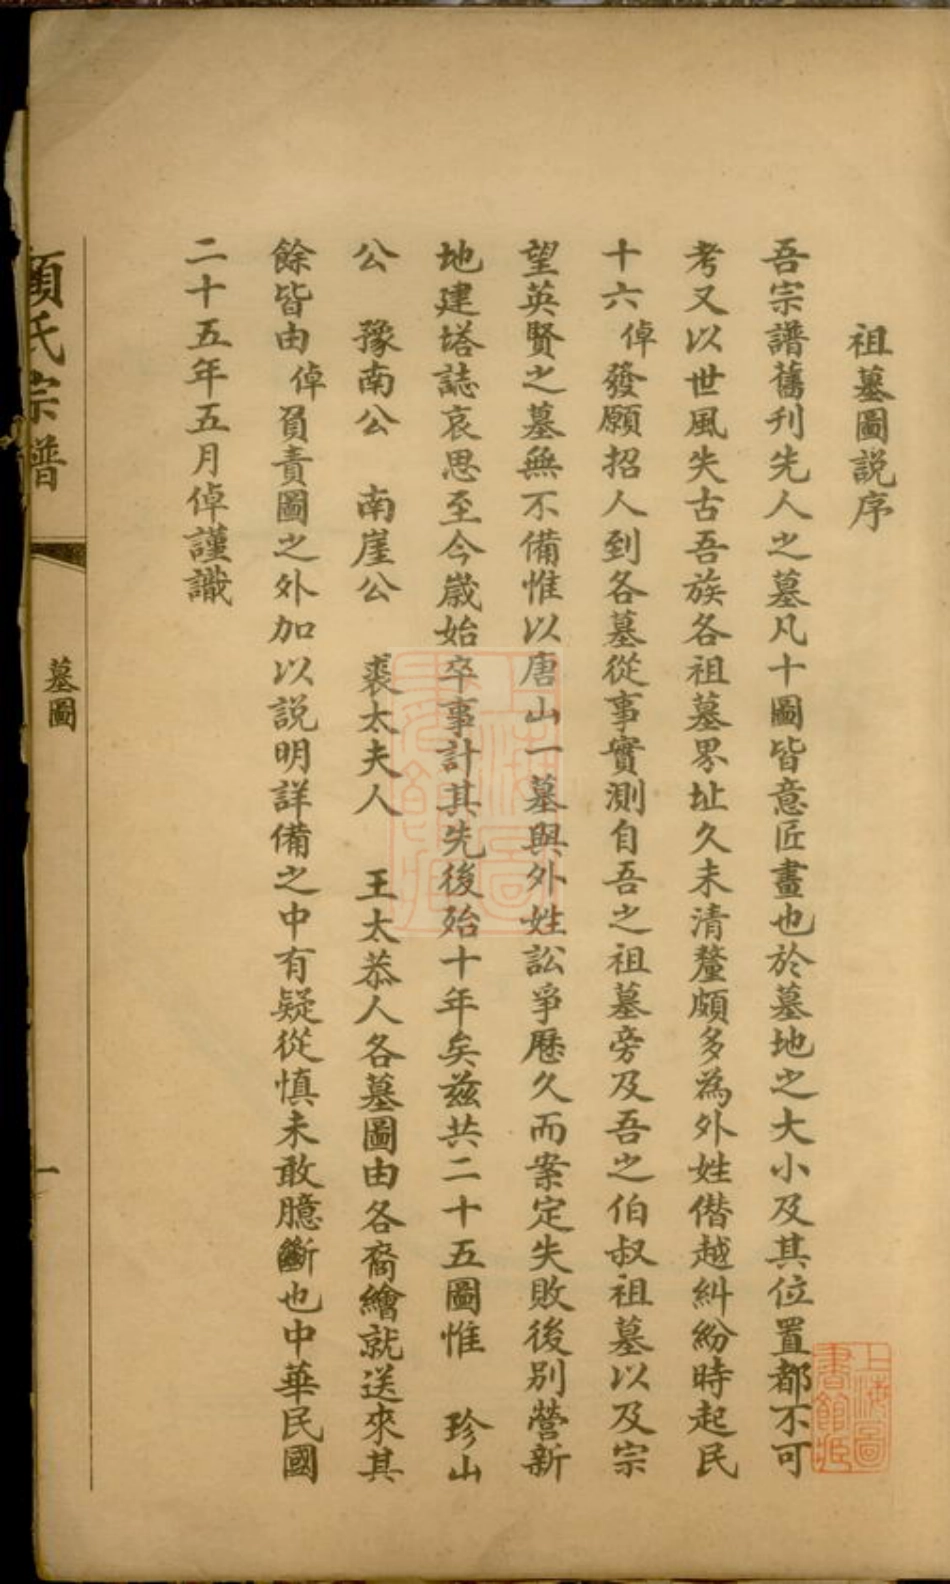 祖墓圖説序
吾宗譜舊刋先人之墓凡十圖皆意匠畫也於墓地之大小及其位置都不可
考又以世風失古吾族各祖墓界址久未清釐頗多為外姓僭越糾紛時起民
十六倬發願招人到各墓從事實測自吾之祖墓旁及吾之伯叔祖墓以及宗
望英賢之墓無不備惟以唐山一墓與外姓訟爭歷久而案定失敗後别營新
地建塔誌哀思至今嵗始卒事計其先後殆十年矣兹共二十五圖惟 珍山
公 豫南公 南崖公 裘太夫人 王太恭人各墓圖由各裔繪就送來其
餘皆由倬負責圖之外加以説明詳備之中有疑從慎未敢臆斷也中華民國
二十五年五月倬謹識
氏宗譜
墓圖
一
上海圖書館藏
上海圖書館藏